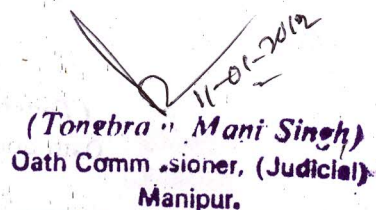 11-01-2012
(Tongbra Mani Singh)
Oath Comm.sioner, (Judicial)
Manipur.